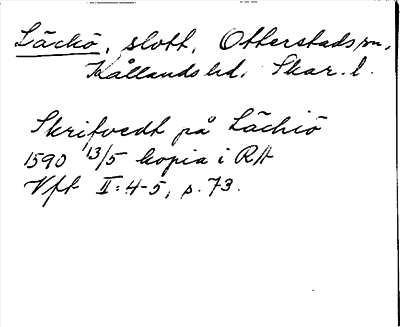 Läckö, slott, Otterstads sn,
Kållands hd, Skar. l.
Skrifvedt på Läckiö
1590 13/5 kopia i RA
Vft II: 4-5, s. 73.